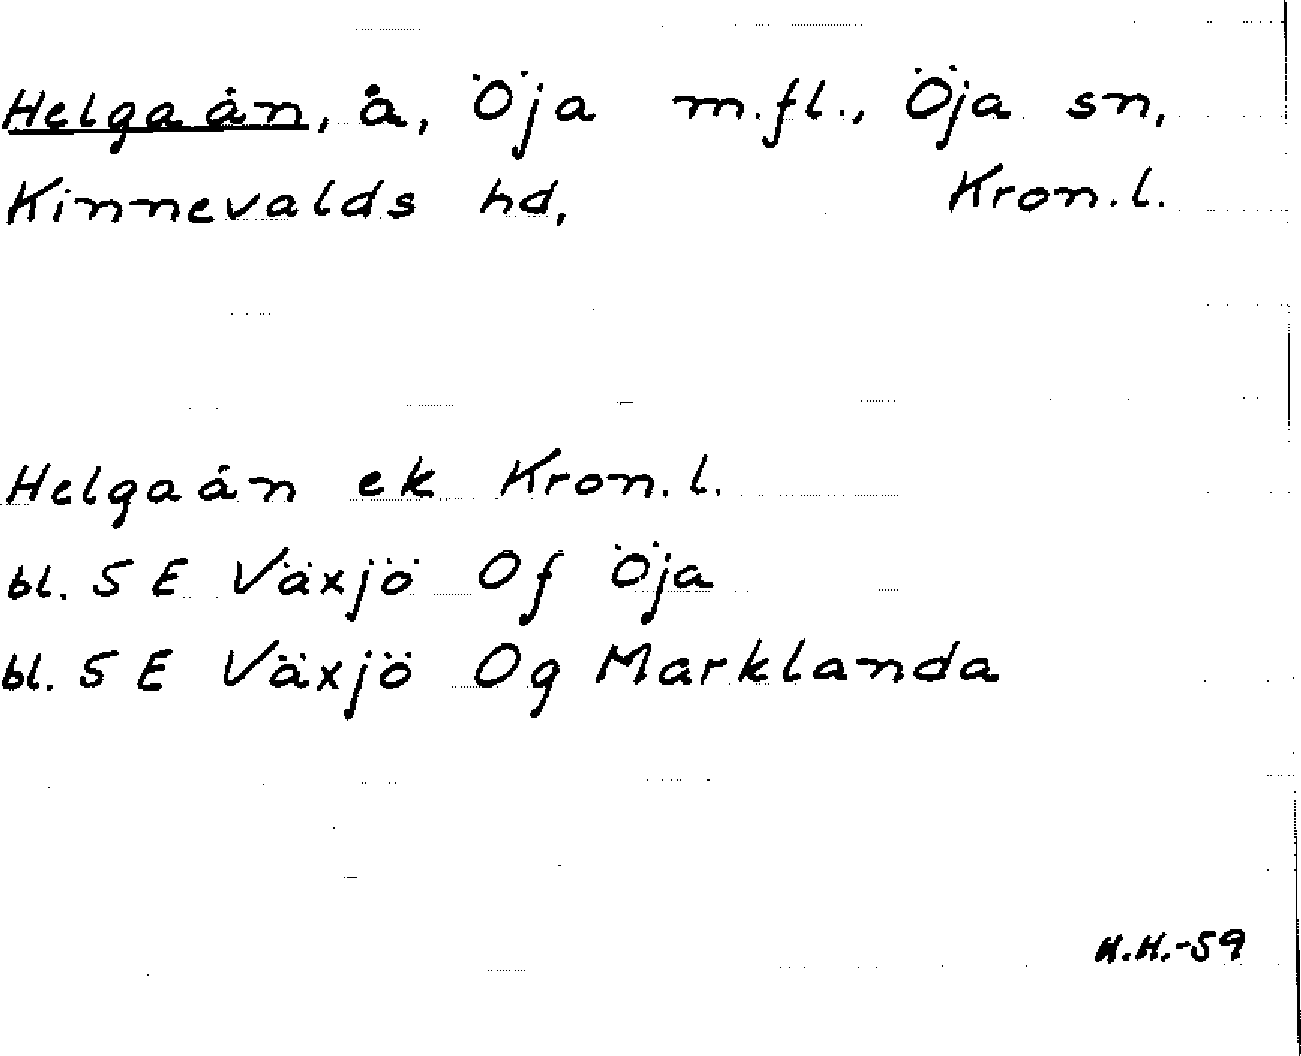 Helgaån, å, Öja m.fl., Öja sn,
Kinnevalds hd, Kron.l.
Helgaån ek Kron.l.
bl. 5 E Växjö Of Öja
bl. 5 E Växjö Og Marklanda
H.H.-59